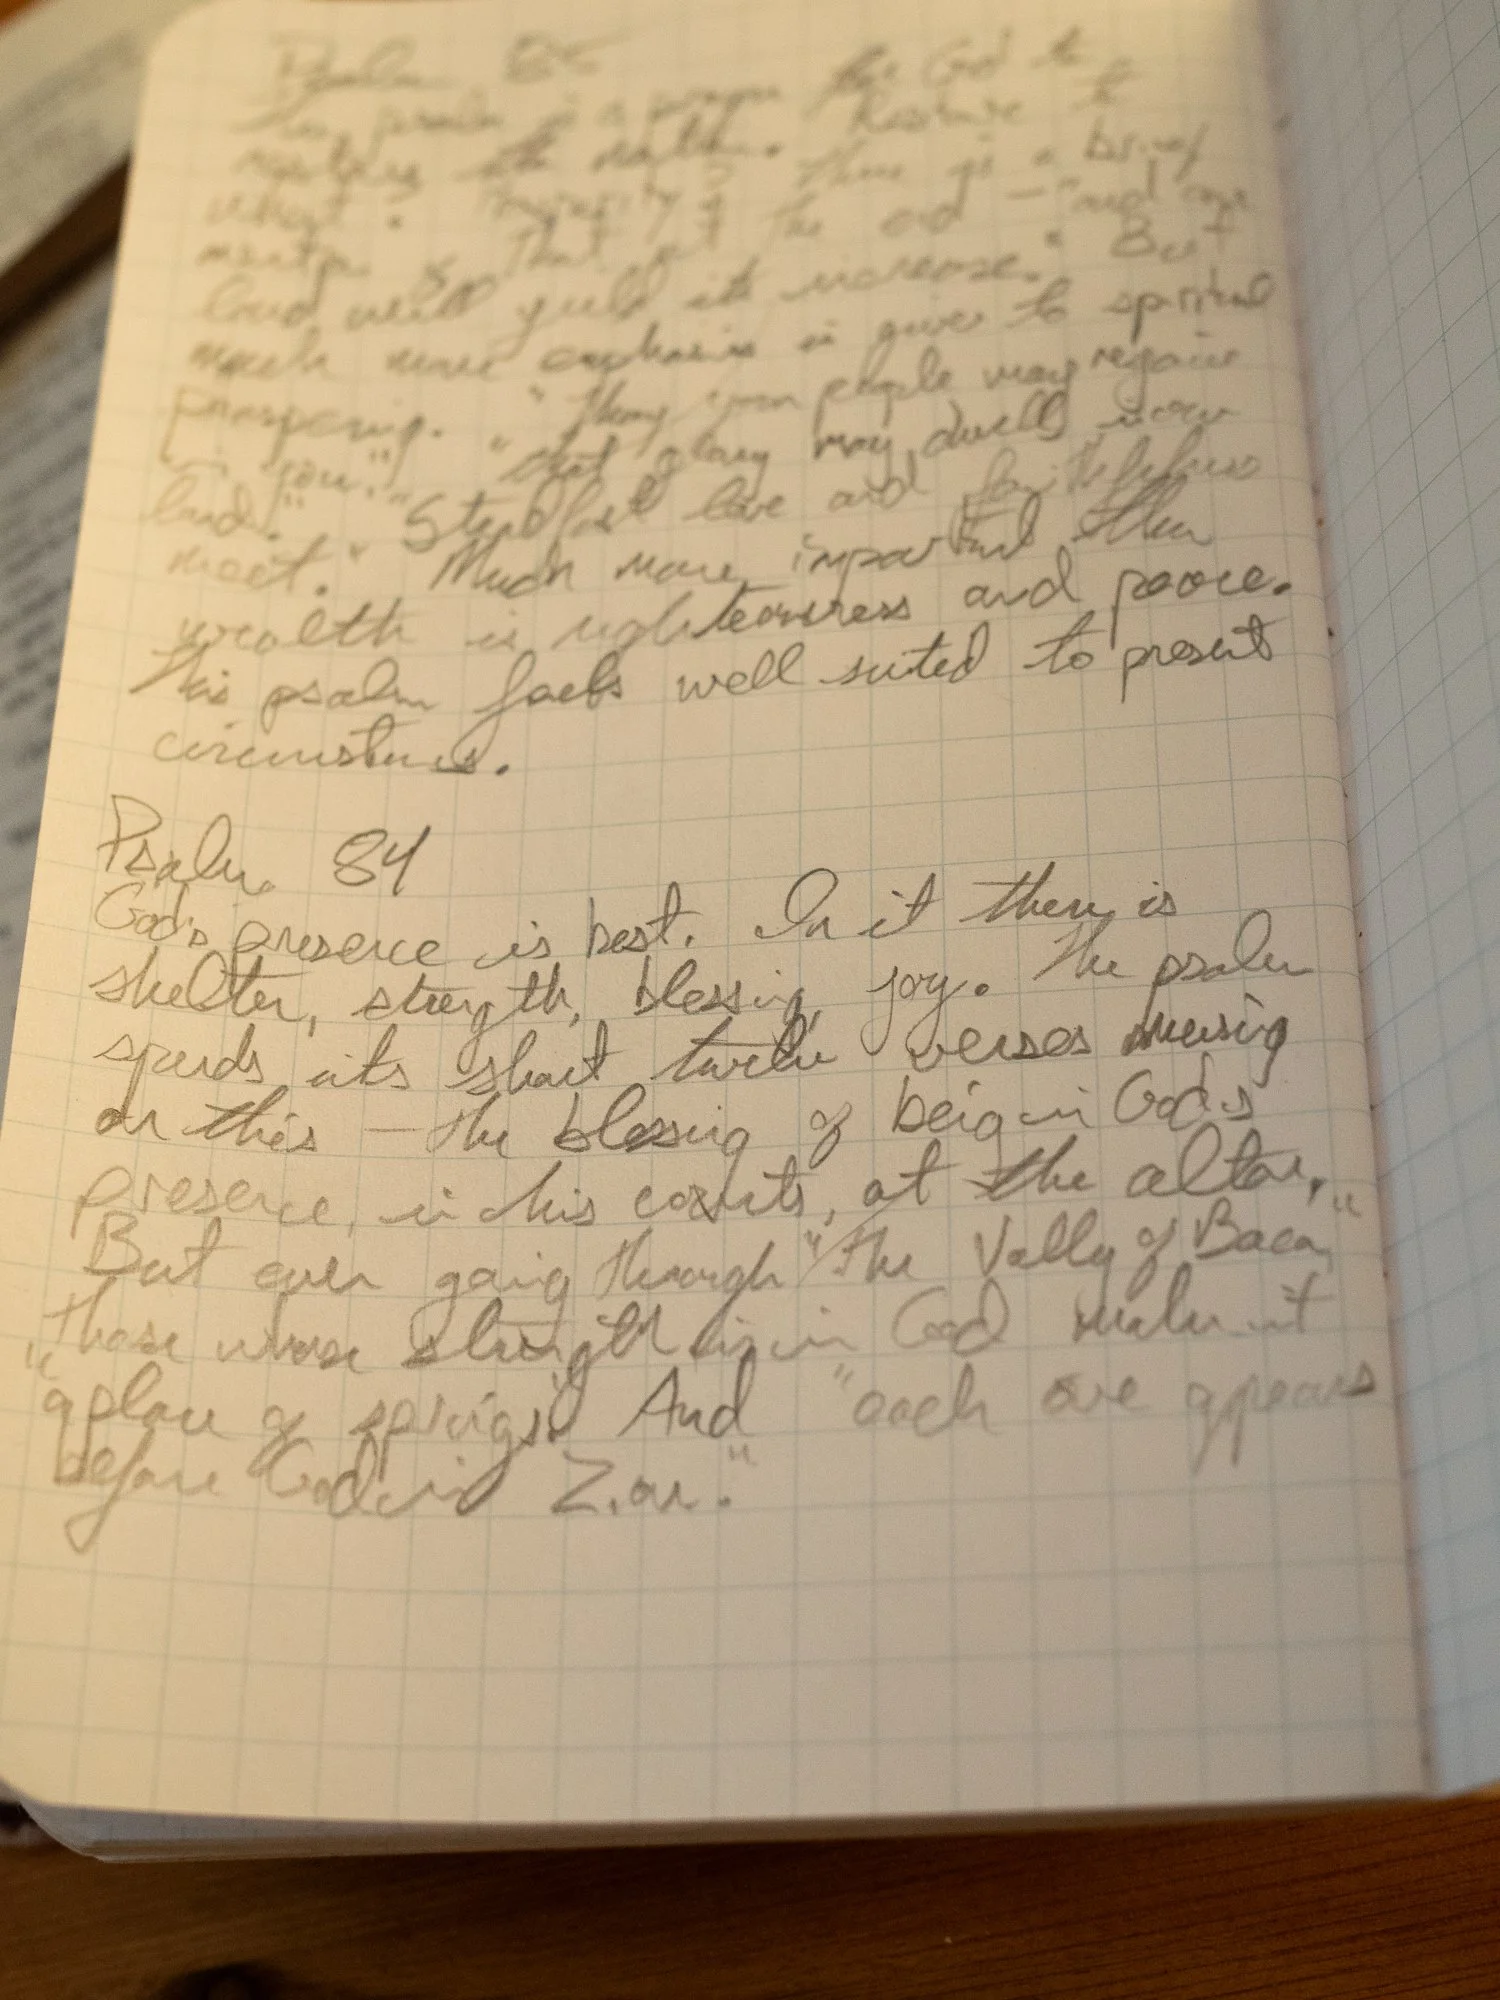 Psalm 85
This psalm is a prayer for God to
restore the nation. Restore to
what? Prosperity? There is a brief
mention of that at the end — "and our
land will yield its increase." But
much more emphasis is given to spiritual
prospering. "Thy people may rejoice
in you." "that glory may dwell in our
land." "Steadfast love and faithfulness
meet." Much more important than
wealth is righteousness and peace.
This psalm feels well suited to present
circumstances.
Psalm 84
God's presence is best. In it there is
shelter, strength, blessing, joy. The psalm
spends its short twelve verses musing
on this — the blessing of being in God's
presence, in his courts, at the altar.
But even going through "the Valley of Baca,"
those whose strength is in God make it
"a place of springs." And "each one appears
before God in Zion."